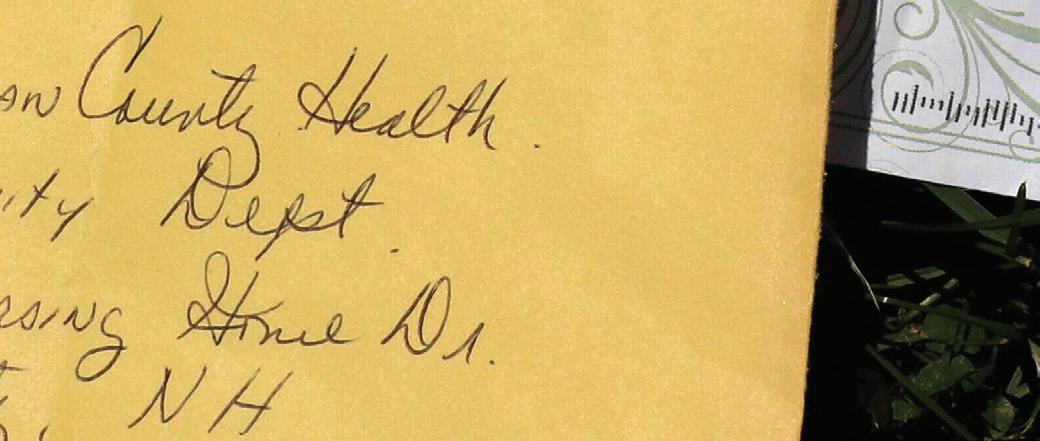 an County Health.
ity Dept.
rsing Home Dr.
, NH